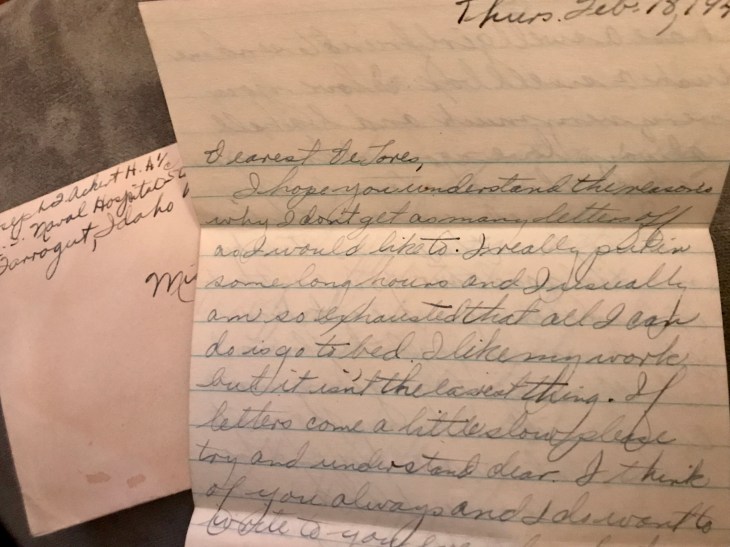 Thurs. Feb. 18, 194
Dearest Delores,
I hope you understand the reasons
why I don't get as many letters off
as I would like to. I really put in
some long hours and I usually
am so exhausted that all I can
do is go to bed. I like my work,
but it isn't the easiest thing. If
letters come a little slow please
try and understand dear. I think
of you always and I do want to
write to you
Ackert H.A. 1/c
U.S. Naval Hospital
Farragut, Idaho